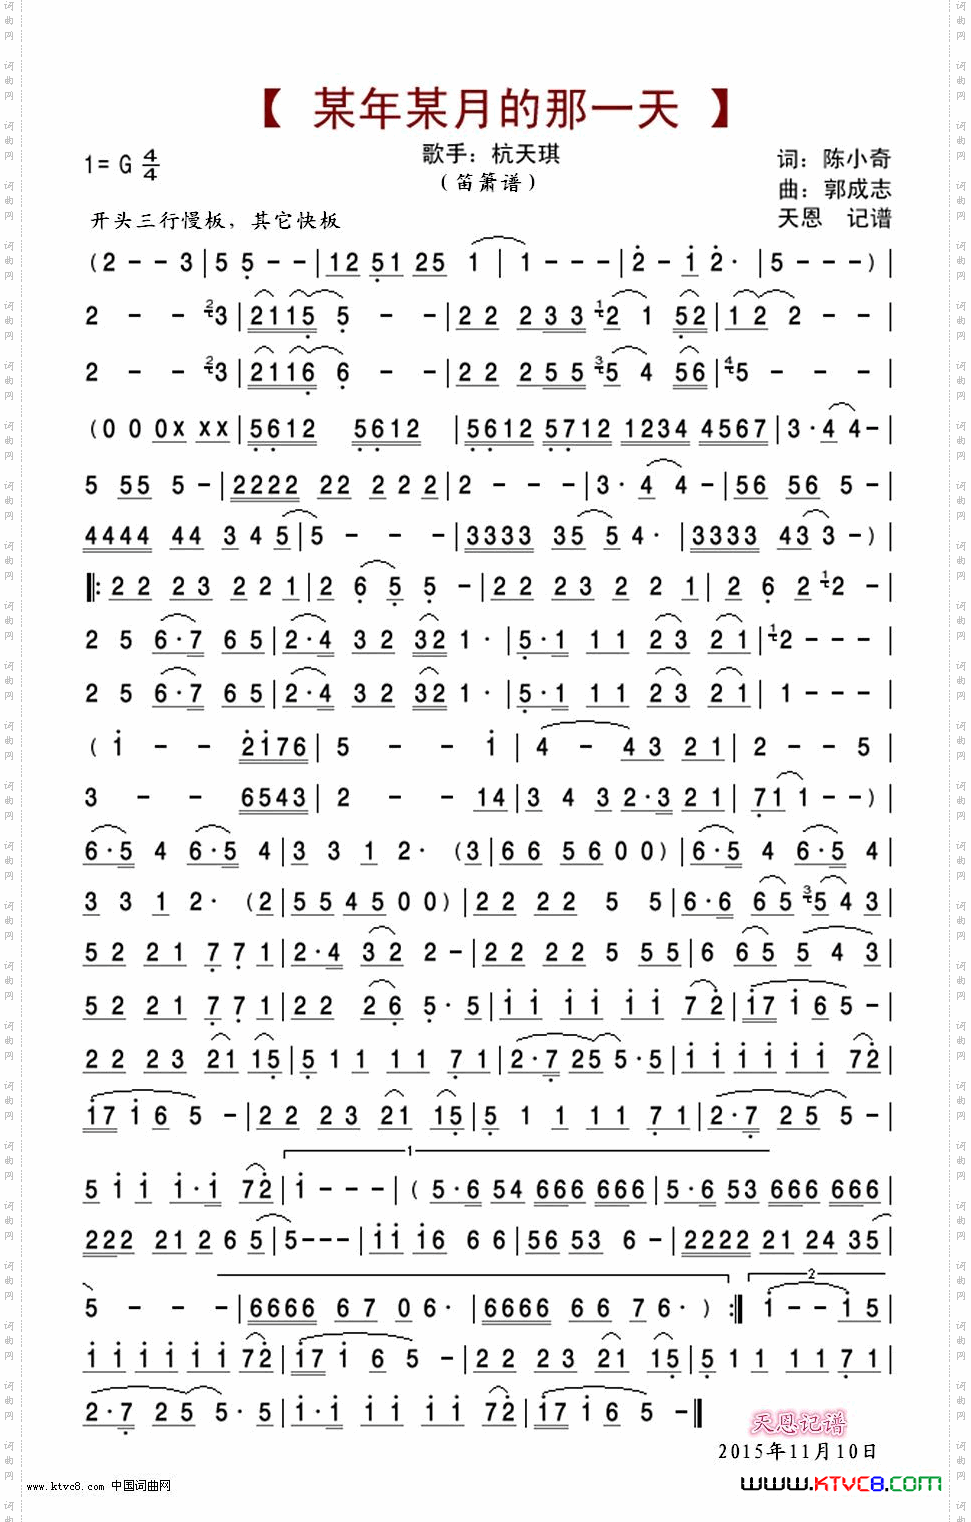 【 某年某月的那一天 】
1= G 4/4
歌手：杭天琪
（笛箫谱）
词：陈小奇
曲：郭成志
天恩 记谱
开头三行慢板，其它快板
( 2 - - 3 | 5 5 - - | 12 51 25 1 | 1 - - - | 2 - i 2 · | 5 - - - ) |
2 - - 3 | 2115 5 - - | 22 233 2 1 52 | 1 2 2 - - |
2 - - 3 | 2116 6 - - | 22 255 5 4 56 | 5 - - - |
( 0 0 0X XX | 5612 5612 | 5612 5712 1234 4567 | 3 · 4 4 - |
5 55 5 - | 2222 22 2 2 2 | 2 - - - | 3 · 4 4 - | 56 56 5 - |
4444 44 3 4 5 | 5 - - - | 3333 35 5 4 · | 3333 43 3 - ) |
‖: 2 2 23 2 2 1 | 2 6 5 5 - | 22 23 2 2 1 | 2 6 2 2 - |
2 5 6·7 65 | 2·4 32 32 1 · | 5·1 11 23 21 | 2 - - - |
2 5 6·7 65 | 2·4 32 32 1 · | 5·1 11 23 21 | 1 - - - |
( i - - 2i76 | 5 - - i | 4 - 43 21 | 2 - - 5 |
3 - - 6543 | 2 - - 14 | 3 4 3 2·3 21 | 71 1 - - ) |
6·5 4 6·5 4 | 3 3 1 2 · (3 | 66 5600) | 6·5 4 6·5 4 |
3 3 1 2 · (2 | 554500) | 22 22 5 5 | 6·6 65 5 4 3 |
52 21 7 7 1 | 2·4 32 2 - | 22 22 5 55 | 6 65 5 4 3 |
52 21 7 7 1 | 22 26 5 · 5 | ii ii ii 72 | i7 i 6 5 - |
22 23 21 15 | 5 1 1 11 71 | 2·7 25 5·5 | i i i i i i 72 |
i7 i 6 5 - | 22 23 21 15 | 5 1 1 11 71 | 2·7 25 5 - |
1
5 i i i·i 72 | i - - - | ( 5·6 54 666 666 | 5·6 53 666 666 |
222 21 2 6 5 | 5 - - - | ii i6 66 | 56 53 6 - | 2222 21 24 35 |
2
5 - - - | 6666 67 06 · | 6666 66 76 · ) :‖ i - - i5 |
i i i i i i 72 | i7 i 6 5 - | 22 23 21 15 | 5 1 1 1171 |
2·7 25 5·5 | i·i ii ii 72 | i7 i 6 5 - ‖
天恩记谱
2015年11月10日
www.ktvc8.com 中国词曲网
www.KTVC8.com